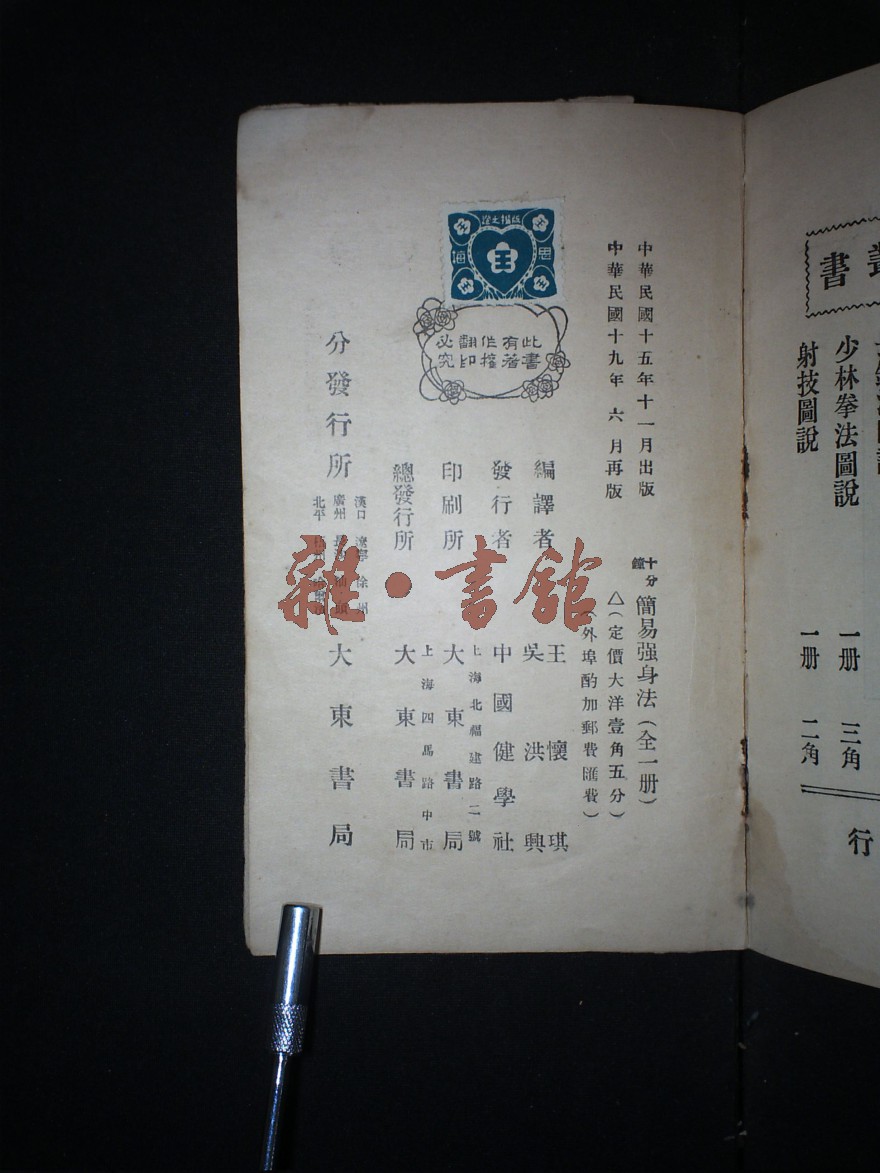 叢書
少林拳法圖說 一册 三角
射技圖說 一册 二角
行
中華民國十五年十一月出版
中華民國十九年六月再版
十分鐘簡易强身法（全一册）
△（定價大洋壹角五分）
（外埠酌加郵費匯費）
版權之證
思海
王
此書有著作權翻印必究
編譯者 王懷琪 吳洪興
發行者 中國健學社
上海北福建路二號
印刷所 大東書局
上海四馬路中市
總發行所 大東書局
分發行所 漢口 遼寧 徐州 廣州 長沙 汕頭 北平 大東書局
雜·書館